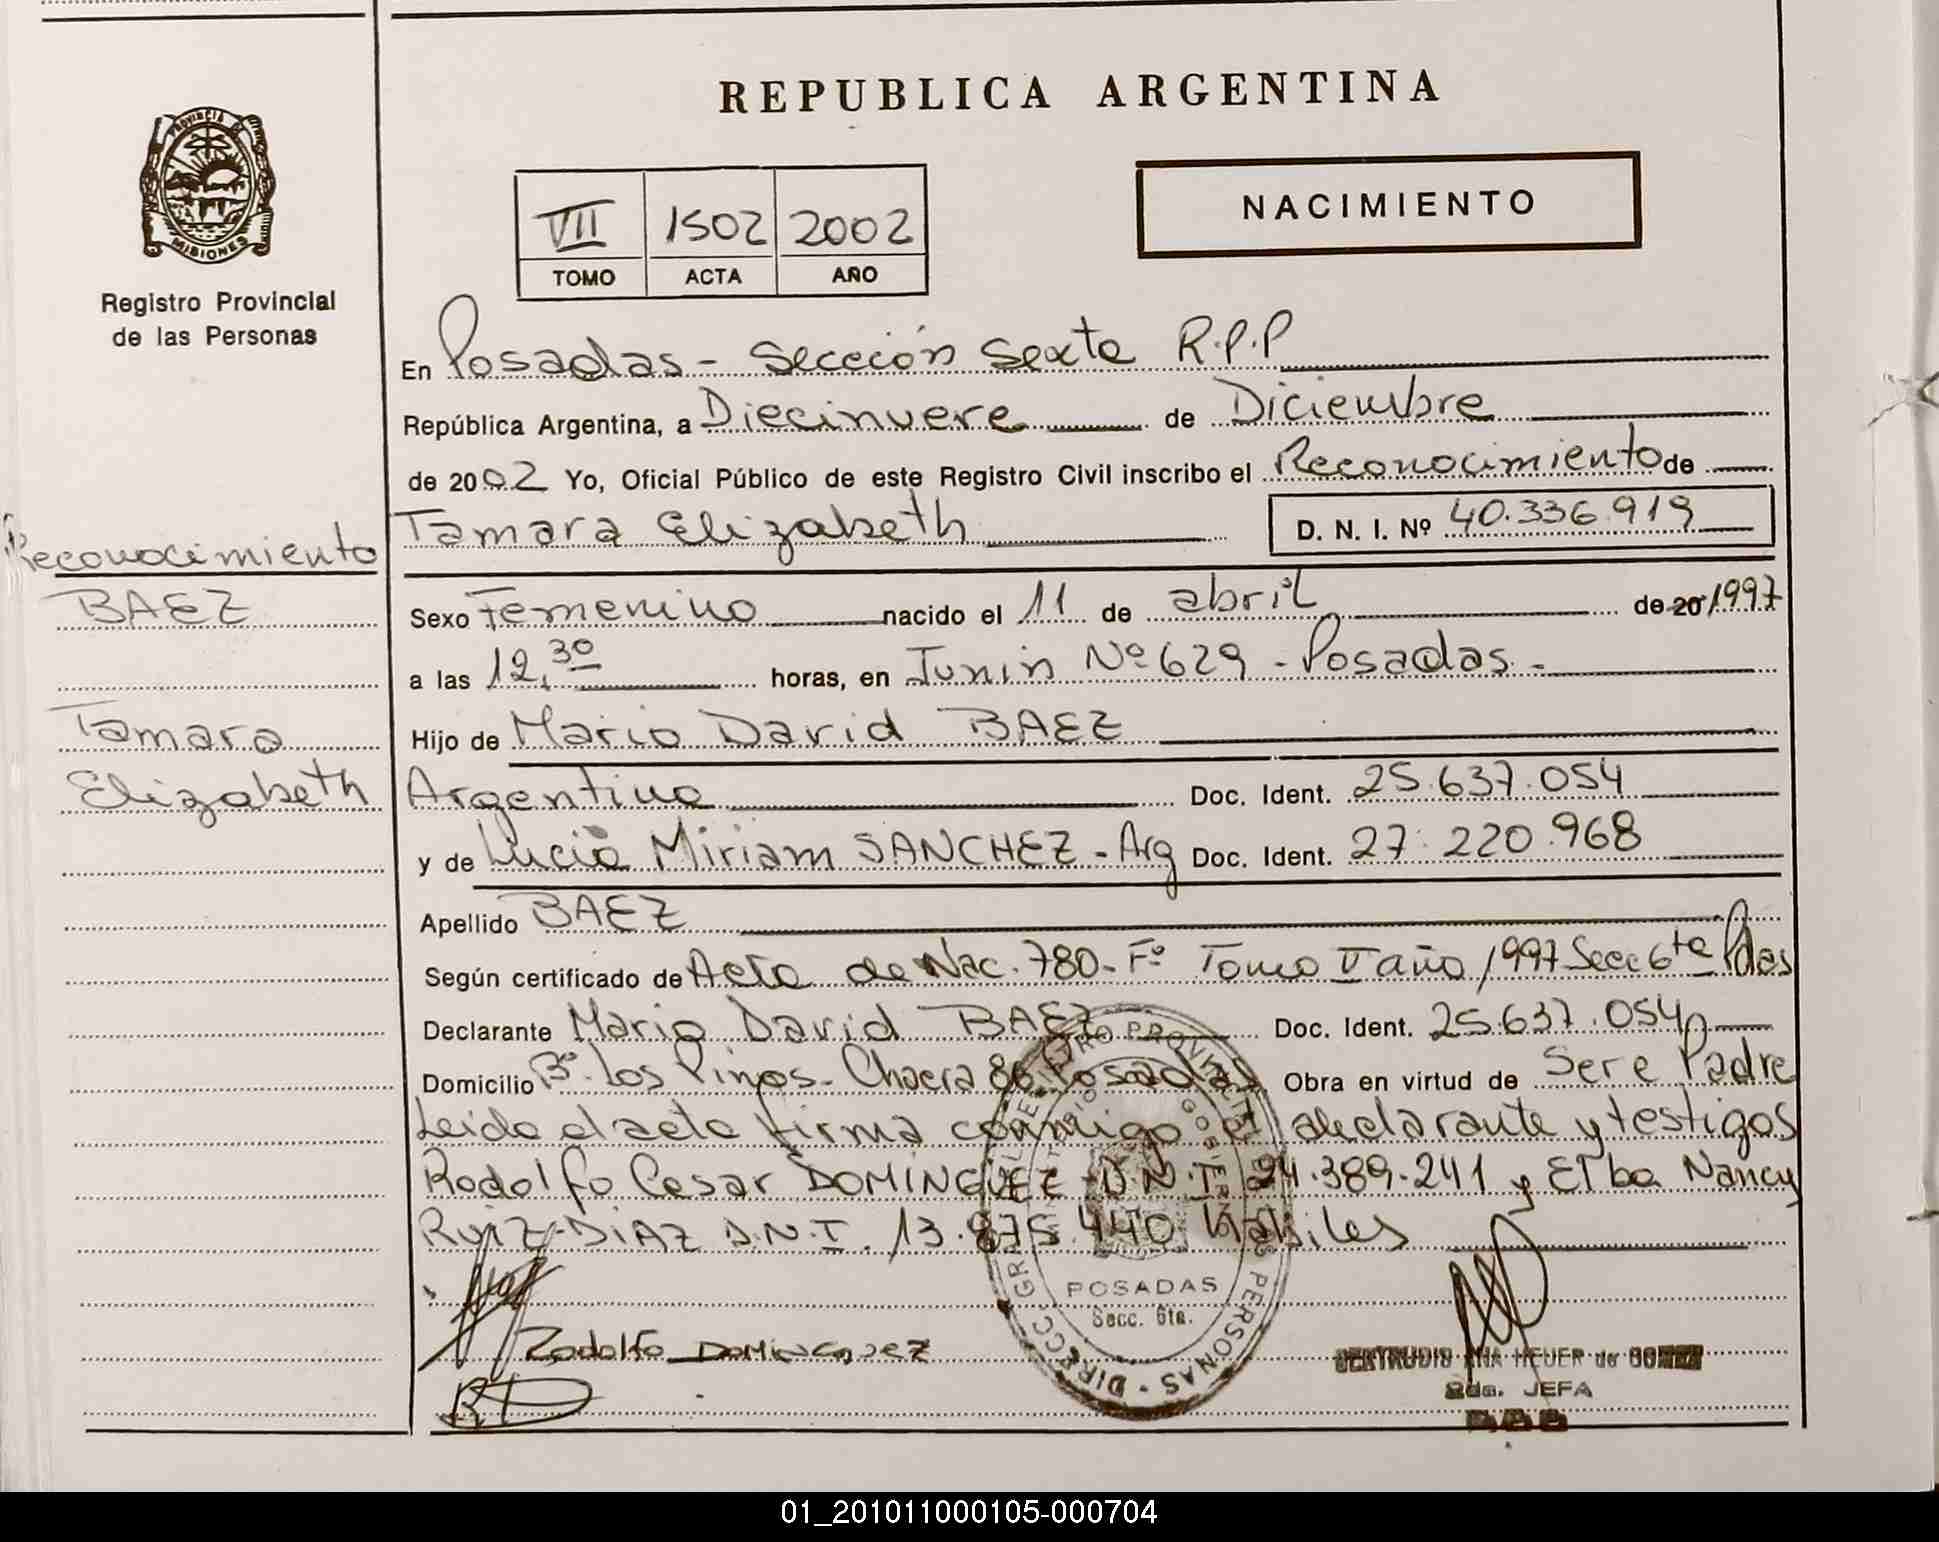 REPUBLICA ARGENTINA
PROVINCIA DE
MISIONES
Registro Provincial
de las Personas
NACIMIENTO
VII 1502 2002
TOMO ACTA AÑO
En Posadas - Sección Sexta R.P.P
República Argentina, a Diecinueve de Diciembre
de 2002 Yo, Oficial Público de este Registro Civil inscribo el Reconocimiento de
Tamara Elizabeth D. N. I. Nº 40.336.919
Reconocimiento
BAEZ
Tamara
Elizabeth
Sexo Femenino nacido el 11 de abril de 20 1997
a las 12,30 horas, en Junin Nº 629 - Posadas -
Hijo de Mario David BAEZ
Argentino Doc. Ident. 25.637.054
y de Lucia Miriam SANCHEZ - Arg Doc. Ident. 27.220.968
Apellido BAEZ
Según certificado de Acta de Nac. 780 - Fº Tomo V año 1997 Secc 6ta Pdas
Declarante Mario David BAEZ Doc. Ident. 25.637.054
Domicilio Bº Los Pinos - Chacra 86 Posadas Obra en virtud de Ser el Padre
Leido el acta firma conmigo el declarante y testigos
Rodolfo Cesar DOMINGUEZ D.N.I. 24.389.241 y Elba Nancy
RUIZ-DIAZ D.N.I. 13.875.440 Habiles
POSADAS
Secc. 6ta.
Rodolfo DOMINGUEZ
GERTRUDIS ANA HEUER de GOMEZ
2da. JEFA
01_201011000105-000704